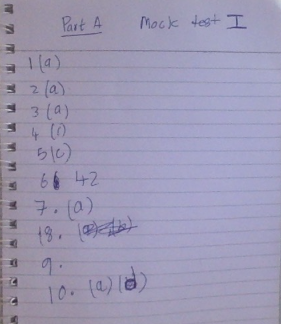 Part A Mock test I
1 (a)
2 (a)
3 (a)
4 (1)
5 (c)
6 42
7. (a)
18.
9.
10. (a) (d)